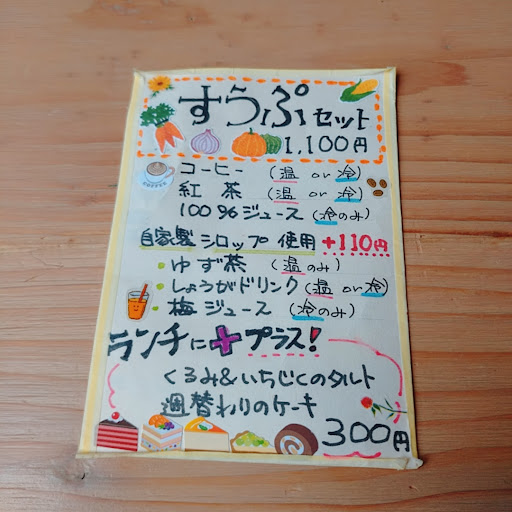 すうぷセット
1,100円
コーヒー (温 or 冷)
紅茶 (温 or 冷)
100%ジュース (冷のみ)
自家製シロップ使用 +110円
・ゆず茶 (温のみ)
・しょうがドリンク (温 or 冷)
・梅ジュース (冷のみ)
ランチに+プラス!
くるみ&いちじくのタルト
週替わりのケーキ
300円